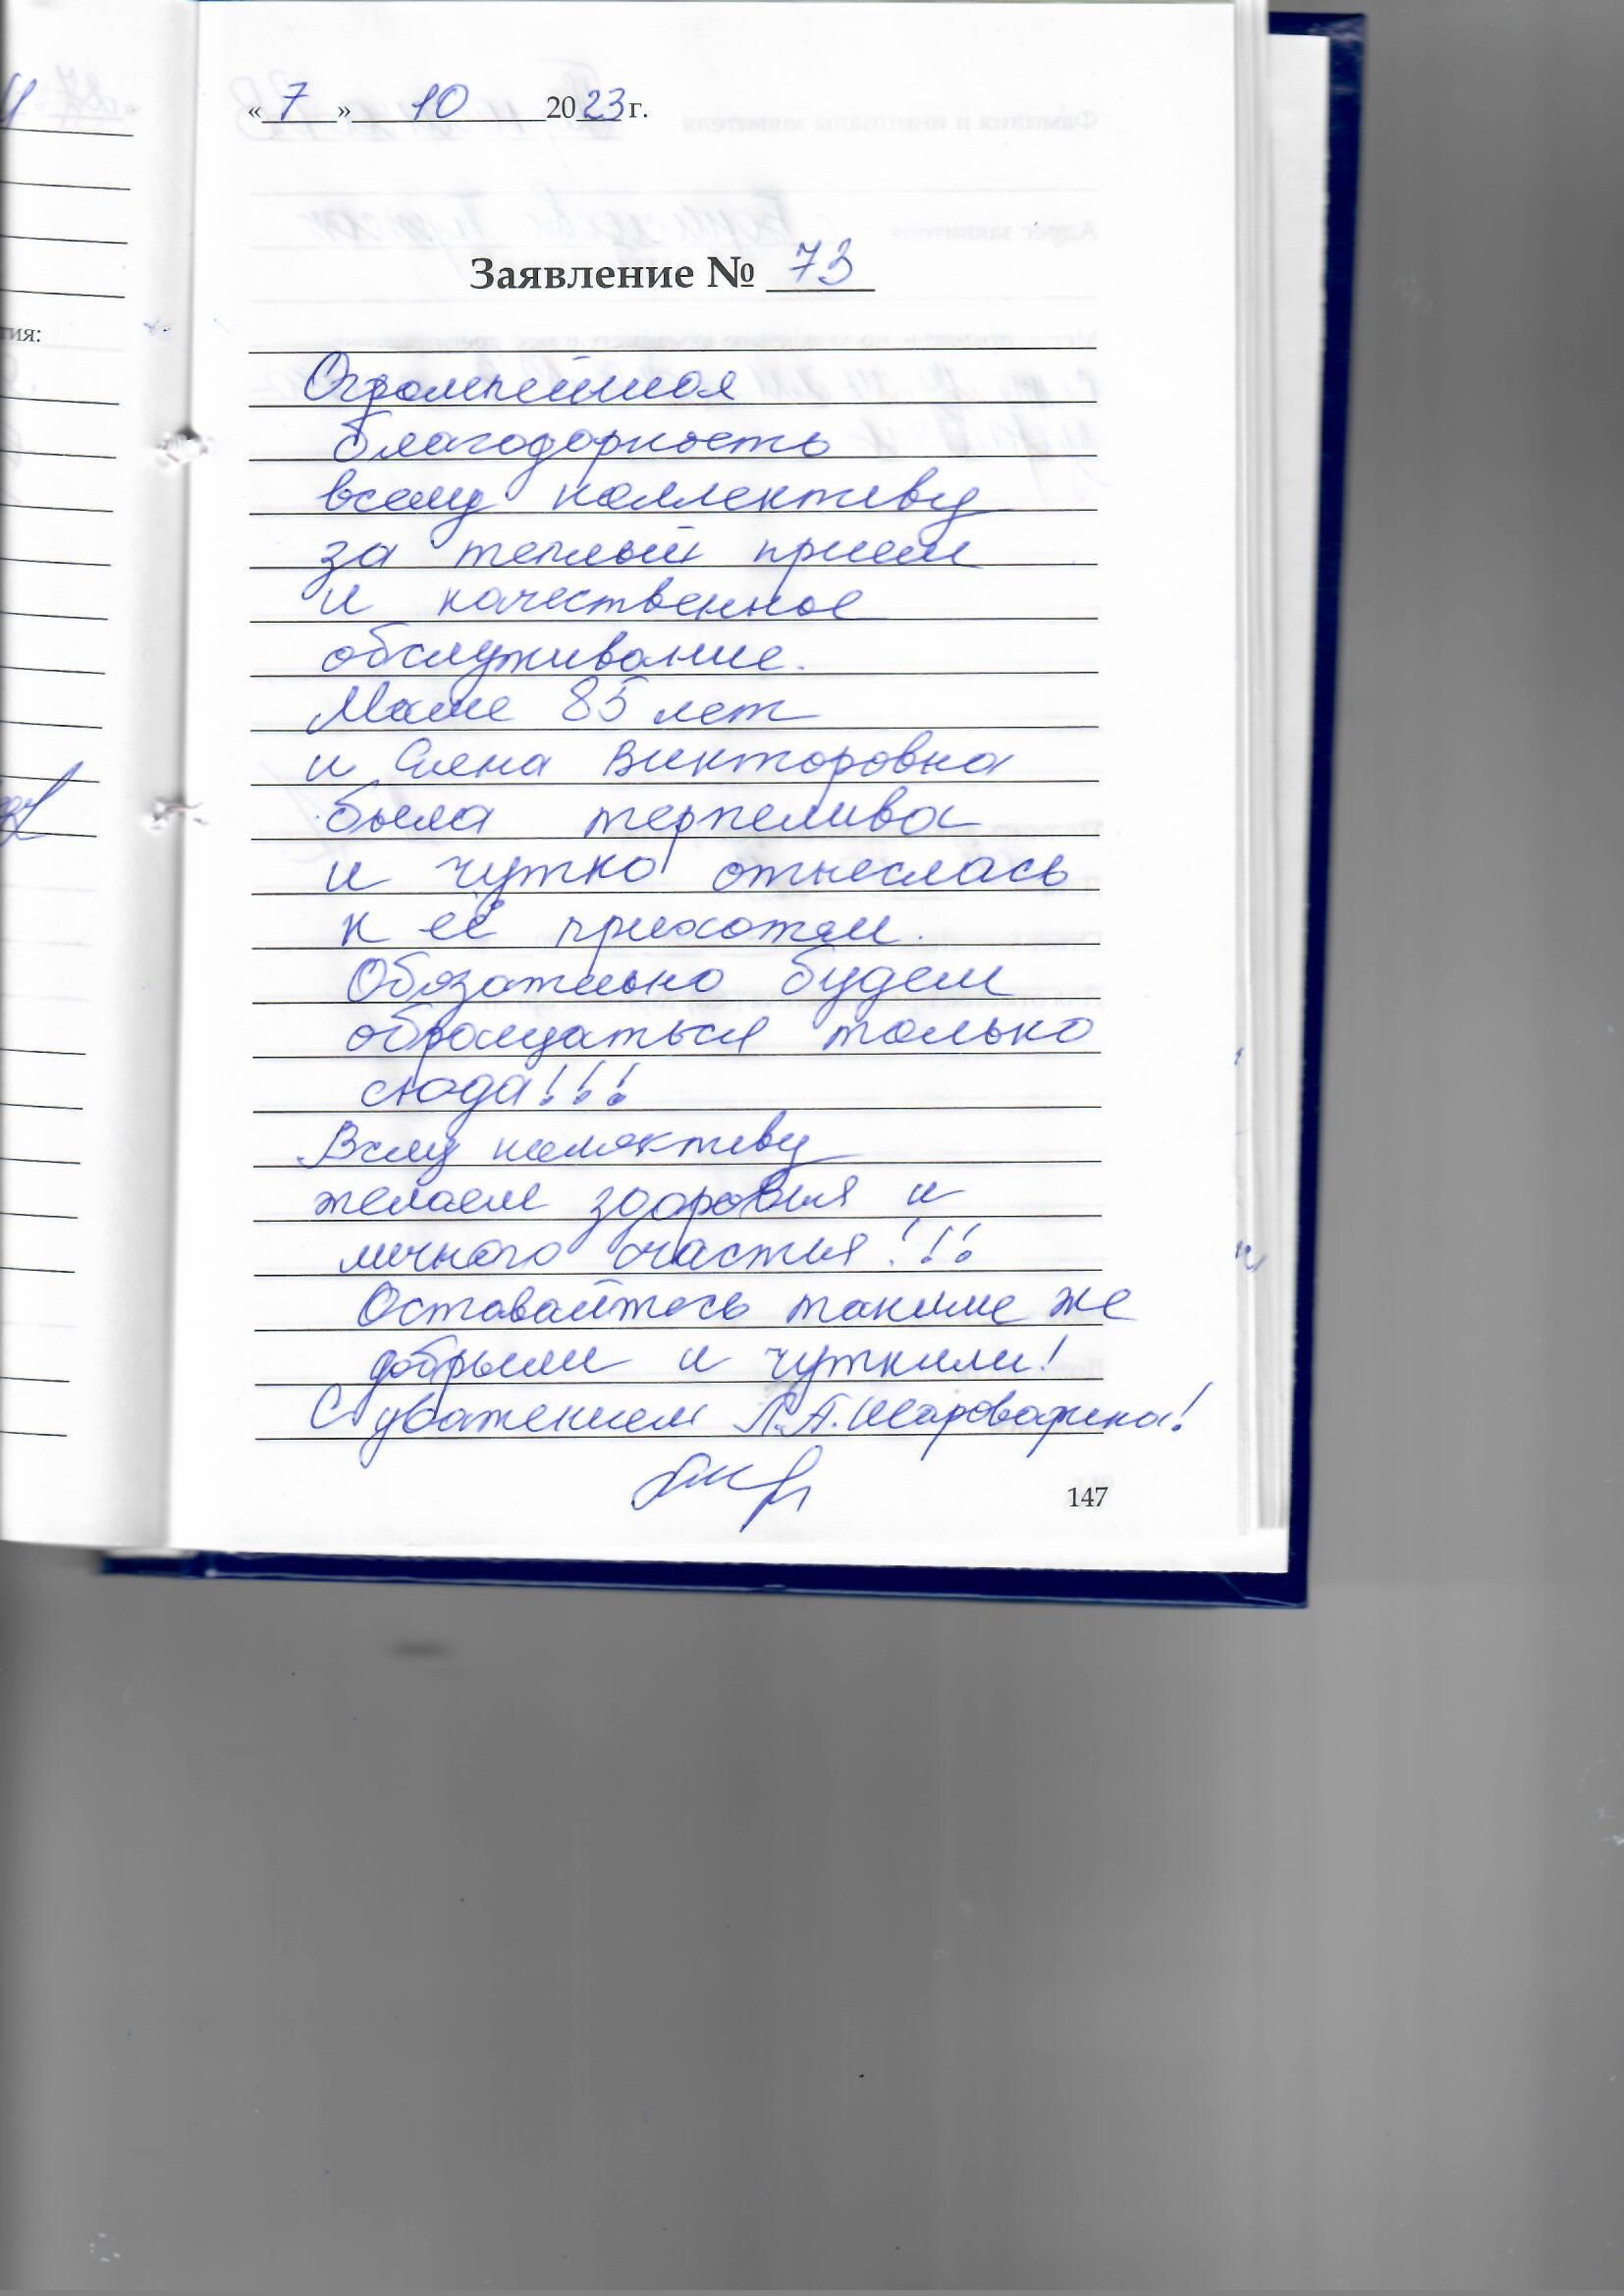 «7» 10 2023 г.
Заявление № 73
Огромнейшая
благодарность
всему коллективу
за теплый прием
и качественное
обслуживание.
Маме 85 лет
и Елена Викторовна
была терпелива
и чутко отнеслась
к её прихотям.
Обязательно будем
обращаться только
сюда!!!
Всему коллективу
желаем здоровья и
личного счастья!!!
Оставайтесь такими же
добрыми и чуткими!
С уважением Л.А.
147
тия: